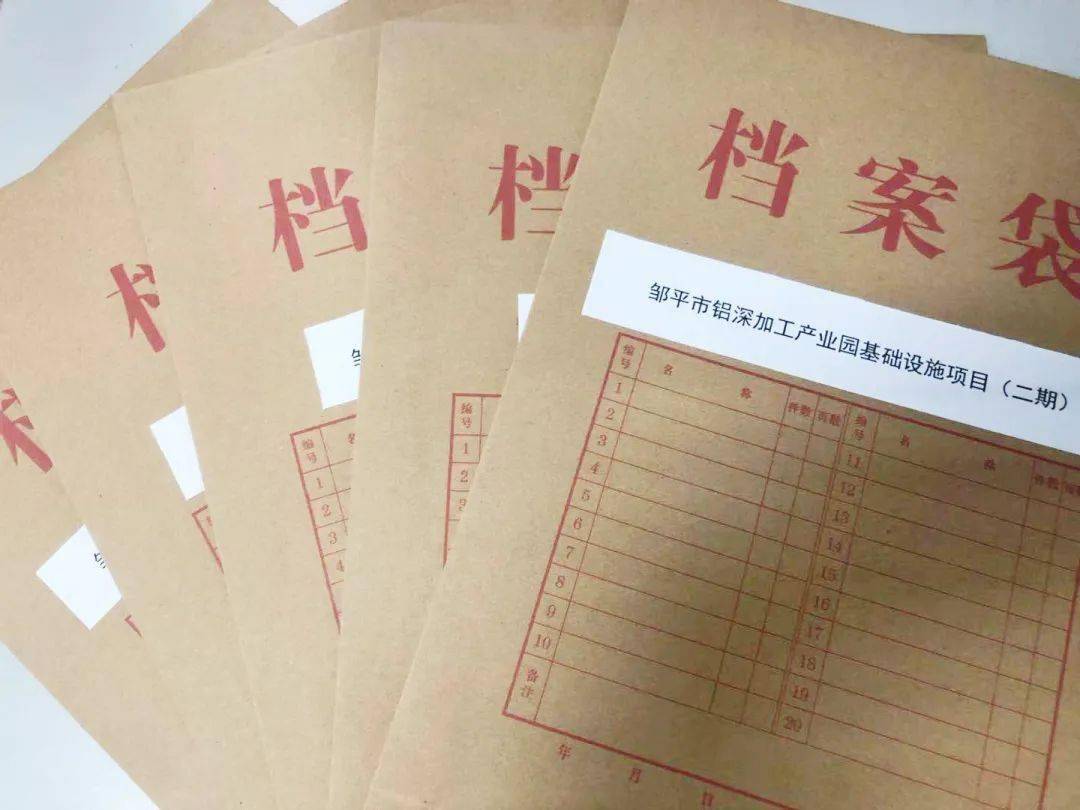 档案袋
邹平市铝深加工产业园基础设施项目（二期）
编号 名 称 件数 页数 编号 名 称 件数
1 11
2 12
3 13
4 14
5 15
6 16
7 17
8 18
9 19
10 20
备注
年 月 日
档
邹
编号 名
1
2
3
4
档
编号
1
2
3
档
邹